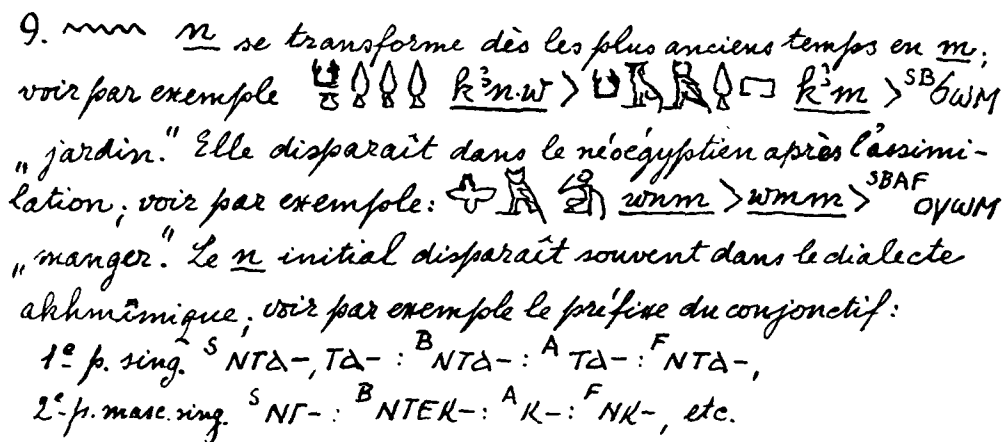 9. 𓈖 n se transforme dès les plus anciens temps en m;
voir par exemple k³n·w > k³m > ˢᴮϭⲱⲙ
„jardin." Elle disparaît dans le néoégyptien après l'assimi-
lation; voir par exemple: wnm > wmm > ˢᴮᴬꟳⲟⲩⲱⲙ
„manger." Le n initial disparaît souvent dans le dialecte
akhmîmique; voir par exemple le préfixe du conjonctif:
1ᵉ p. sing. ˢ ⲛⲧⲁ-, ⲧⲁ- : ᴮ ⲛⲧⲁ- : ᴬ ⲧⲁ- : ꟳ ⲛⲧⲁ-,
2ᵉ p. masc. sing. ˢ ⲛⲅ- : ᴮ ⲛⲧⲉⲕ- : ᴬ ⲕ- : ꟳ ⲛⲕ-, etc.